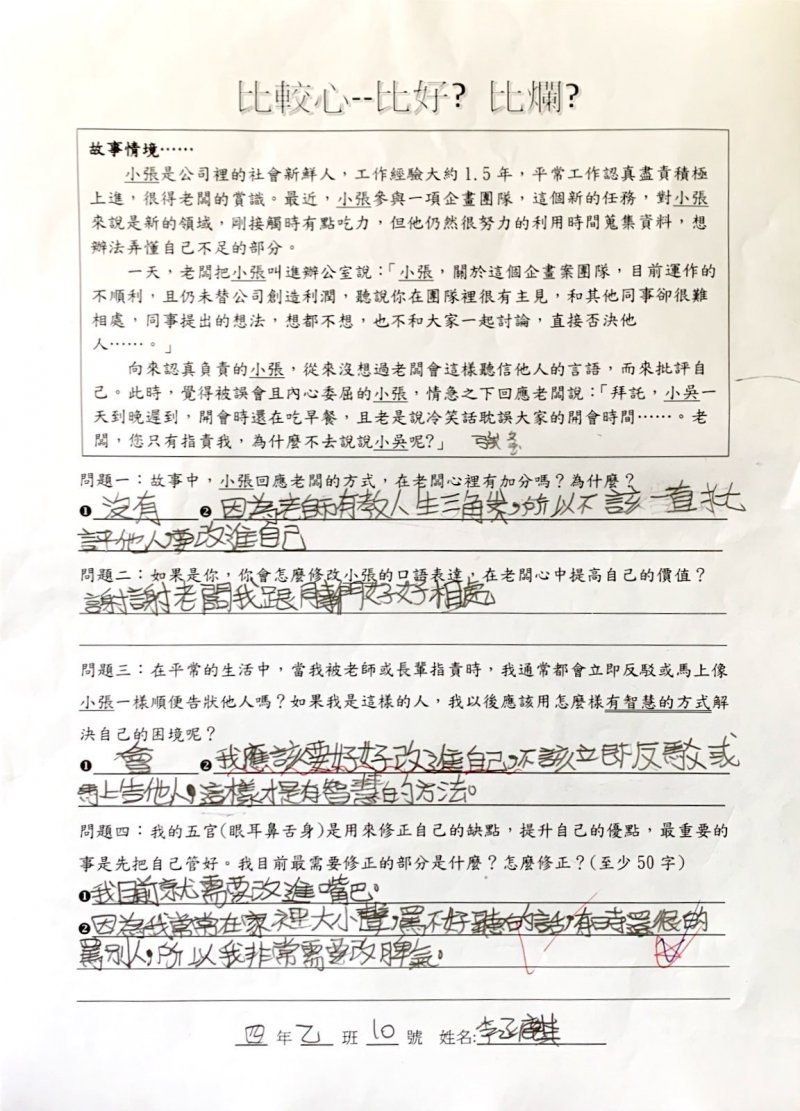 比較心--比好? 比爛?
故事情境……
小張是公司裡的社會新鮮人，工作經驗大約 1.5 年，平常工作認真盡責積極
上進，很得老闆的賞識。最近，小張參與一項企畫團隊，這個新的任務，對小張
來說是新的領域，剛接觸時有點吃力，但他仍然很努力的利用時間蒐集資料，想
辦法弄懂自己不足的部分。
一天，老闆把小張叫進辦公室說：「小張，關於這個企畫案團隊，目前運作的
不順利，且仍未替公司創造利潤，聽說你在團隊裡很有主見，和其他同事卻很難
相處，同事提出的想法，想都不想，也不和大家一起討論，直接否決他
人……。」
向來認真負責的小張，從來沒想過老闆會這樣聽信他人的言語，而來批評自
己。此時，覺得被誤會且內心委屈的小張，情急之下回應老闆說：「拜託，小吳一
天到晚遲到，開會時還在吃早餐，且老是說冷笑話耽誤大家的開會時間……。老
闆，您只有指責我，為什麼不去說說小吳呢?」
問題一：故事中，小張回應老闆的方式，在老闆心裡有加分嗎？為什麼？
❶ 沒有 ❷ 因為老師有教人生三角柴，所以不該一直批
評他人要改進自己
問題二：如果是你，你會怎麼修改小張的口語表達，在老闆心中提高自己的價值？
謝謝老闆我跟 們好好相處
問題三：在平常的生活中，當我被老師或長輩指責時，我通常都會立即反駁或馬上像
小張一樣順便告狀他人嗎？如果我是這樣的人，我以後應該用怎麼樣有智慧的方式解
決自己的困境呢？
❶ 會 ❷ 我應該要好好改進自己，不該立即反駁或
馬上告他人，這樣才是有智慧的方法。
問題四：我的五官(眼耳鼻舌身)是用來修正自己的缺點，提升自己的優點，最重要的
事是先把自己管好。我目前最需要修正的部分是什麼？怎麼修正？(至少 50 字)
❶我目前就需要改進嘴巴。
❷因為我常常在家裡大小聲，罵不好聽的話，有時還很的
罵別人，所以我非常需要改脾氣。
四 年 乙 班 10 號 姓名:李丞麒